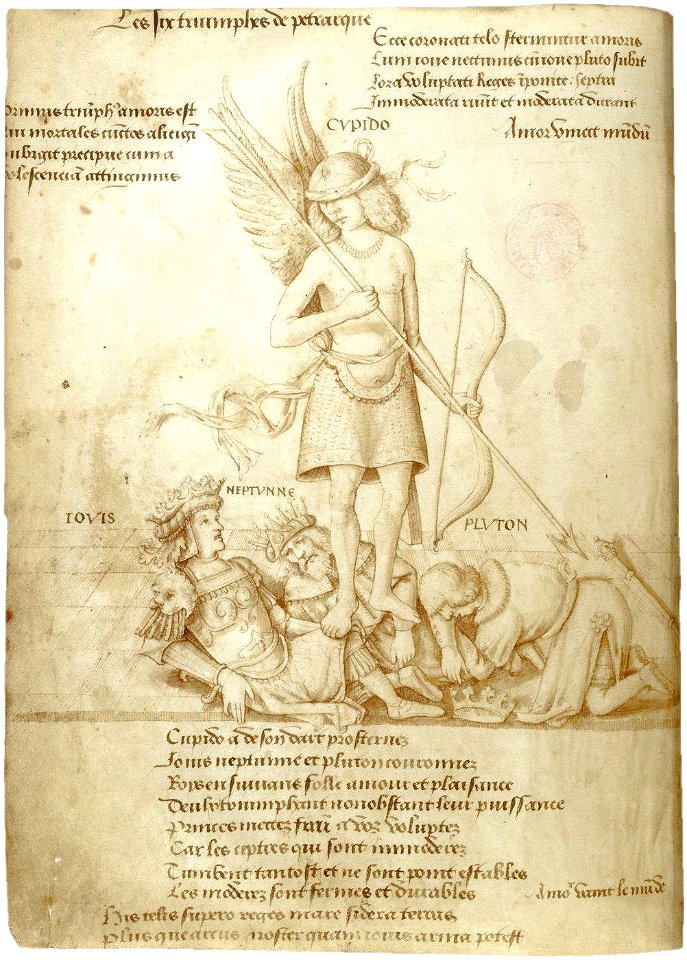 Les six triumphes de petrarque
Ecce coronati telo sternuntur amoris
Cum ioue nectunus cũ ione pluto subit
Lora voluptati Reges ĩponite: sceptra
Immoderata ruũt et moderata durant
Amor vincit mũdũ
primus triũph' amoris est
qui mortales cũctos alicigĩ
subigit precipue cum a
dolescenciã attingimus
CVPIDO
IOVIS
NEPTVNNE
PLVTON
Cupido a de son dart prosternez
Iouis neptunne et pluton couronnez
Roys ensuiuans folle amour et plaisance
Deulx triumphant nonobstant leur puissance
Princes mectez frain a voz voluptez
Car les ceptres qui sont immoderez
Tumbent tantost et ne sont point estables
Les moderez sont fermes et durables
Amoʳ vainct le mõde
His telis supero reges mare sidera terras
Plus que arcus noster quam iouis arma potest